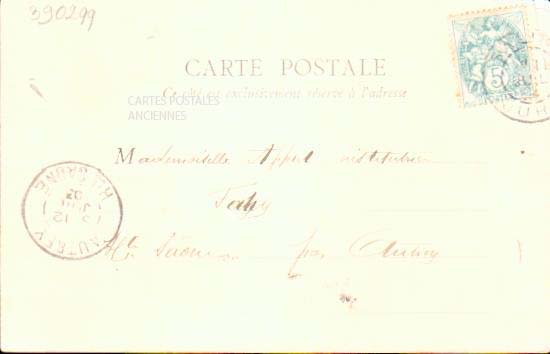 390299
CARTE POSTALE
Ce côté est exclusivement réservé à l'adresse
CARTES POSTALES
ANCIENNES
5
Mademoiselle Appel institutrice
Hte Saône par Autrey
AUTREY
Hte SAONE
12
02